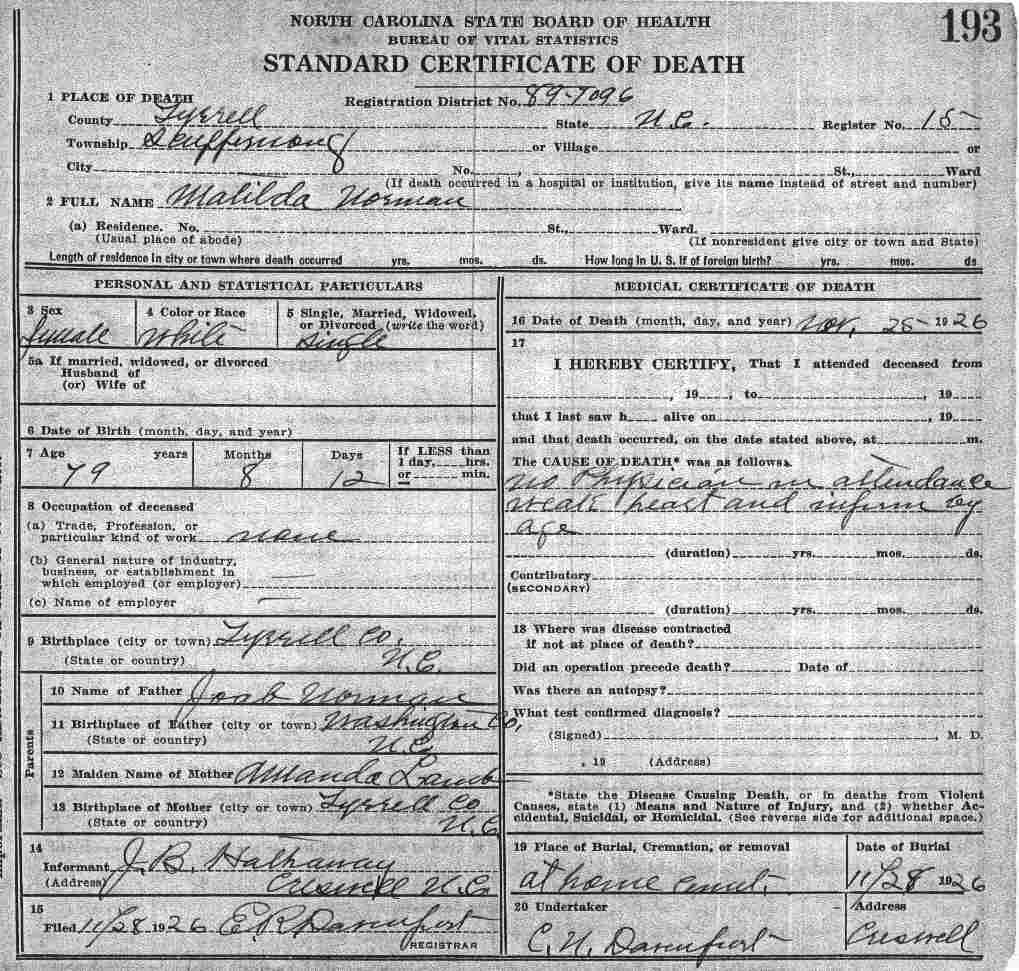 193
NORTH CAROLINA STATE BOARD OF HEALTH
BUREAU OF VITAL STATISTICS
STANDARD CERTIFICATE OF DEATH
1 PLACE OF DEATH Registration District No. 89-7096
County Tyrrell State N.C. Register No. 15
Township Scuppernong or Village or
City No. , St., Ward
(If death occurred in a hospital or institution, give its name instead of street and number)
2 FULL NAME Matilda Norman
(a) Residence. No. St., Ward.
(Usual place of abode) (If nonresident give city or town and State)
Length of residence in city or town where death occurred yrs. mos. ds. How long in U. S. if of foreign birth? yrs. mos. ds.
PERSONAL AND STATISTICAL PARTICULARS
3 Sex 4 Color or Race 5 Single, Married, Widowed,
or Divorced (write the word)
female White Single
5a If married, widowed, or divorced
Husband of
(or) Wife of
6 Date of Birth (month, day, and year)
7 Age years Months Days If LESS than
1 day, hrs.
79 8 12 or min.
8 Occupation of deceased
(a) Trade, Profession, or
particular kind of work none
(b) General nature of industry,
business, or establishment in
which employed (or employer) —
(c) Name of employer —
9 Birthplace (city or town) Tyrrell Co.
(State or country) N.C.
Parents
10 Name of Father Joab Norman
11 Birthplace of Father (city or town) Washington Co,
(State or country) N.C.
12 Maiden Name of Mother Amanda Lamb
13 Birthplace of Mother (city or town) Tyrrell Co
(State or country) N.C
14
Informant J. B. Hathaway
(Address) Creswell N.C.
15
Filed 11/28 1926 E.R. Davenport
REGISTRAR
MEDICAL CERTIFICATE OF DEATH
16 Date of Death (month, day, and year) Nov, 25 1926
17
I HEREBY CERTIFY, That I attended deceased from
, 19 , to , 19
that I last saw h alive on , 19
and that death occurred, on the date stated above, at m.
The CAUSE OF DEATH* was as follows:
no Physician in attendance
weak heart and infirm by
age
(duration) yrs. mos. ds.
Contributory
(SECONDARY)
(duration) yrs. mos. ds.
18 Where was disease contracted
if not at place of death?
Did an operation precede death? Date of
Was there an autopsy?
What test confirmed diagnosis?
(Signed) , M. D.
, 19 (Address)
*State the Disease Causing Death, or in deaths from Violent
Causes, state (1) Means and Nature of Injury, and (2) whether Ac-
cidental, Suicidal, or Homicidal. (See reverse side for additional space.)
19 Place of Burial, Cremation, or removal Date of Burial
at home cemt. 11/28 1926
20 Undertaker Address
C. N. Davenport Creswell